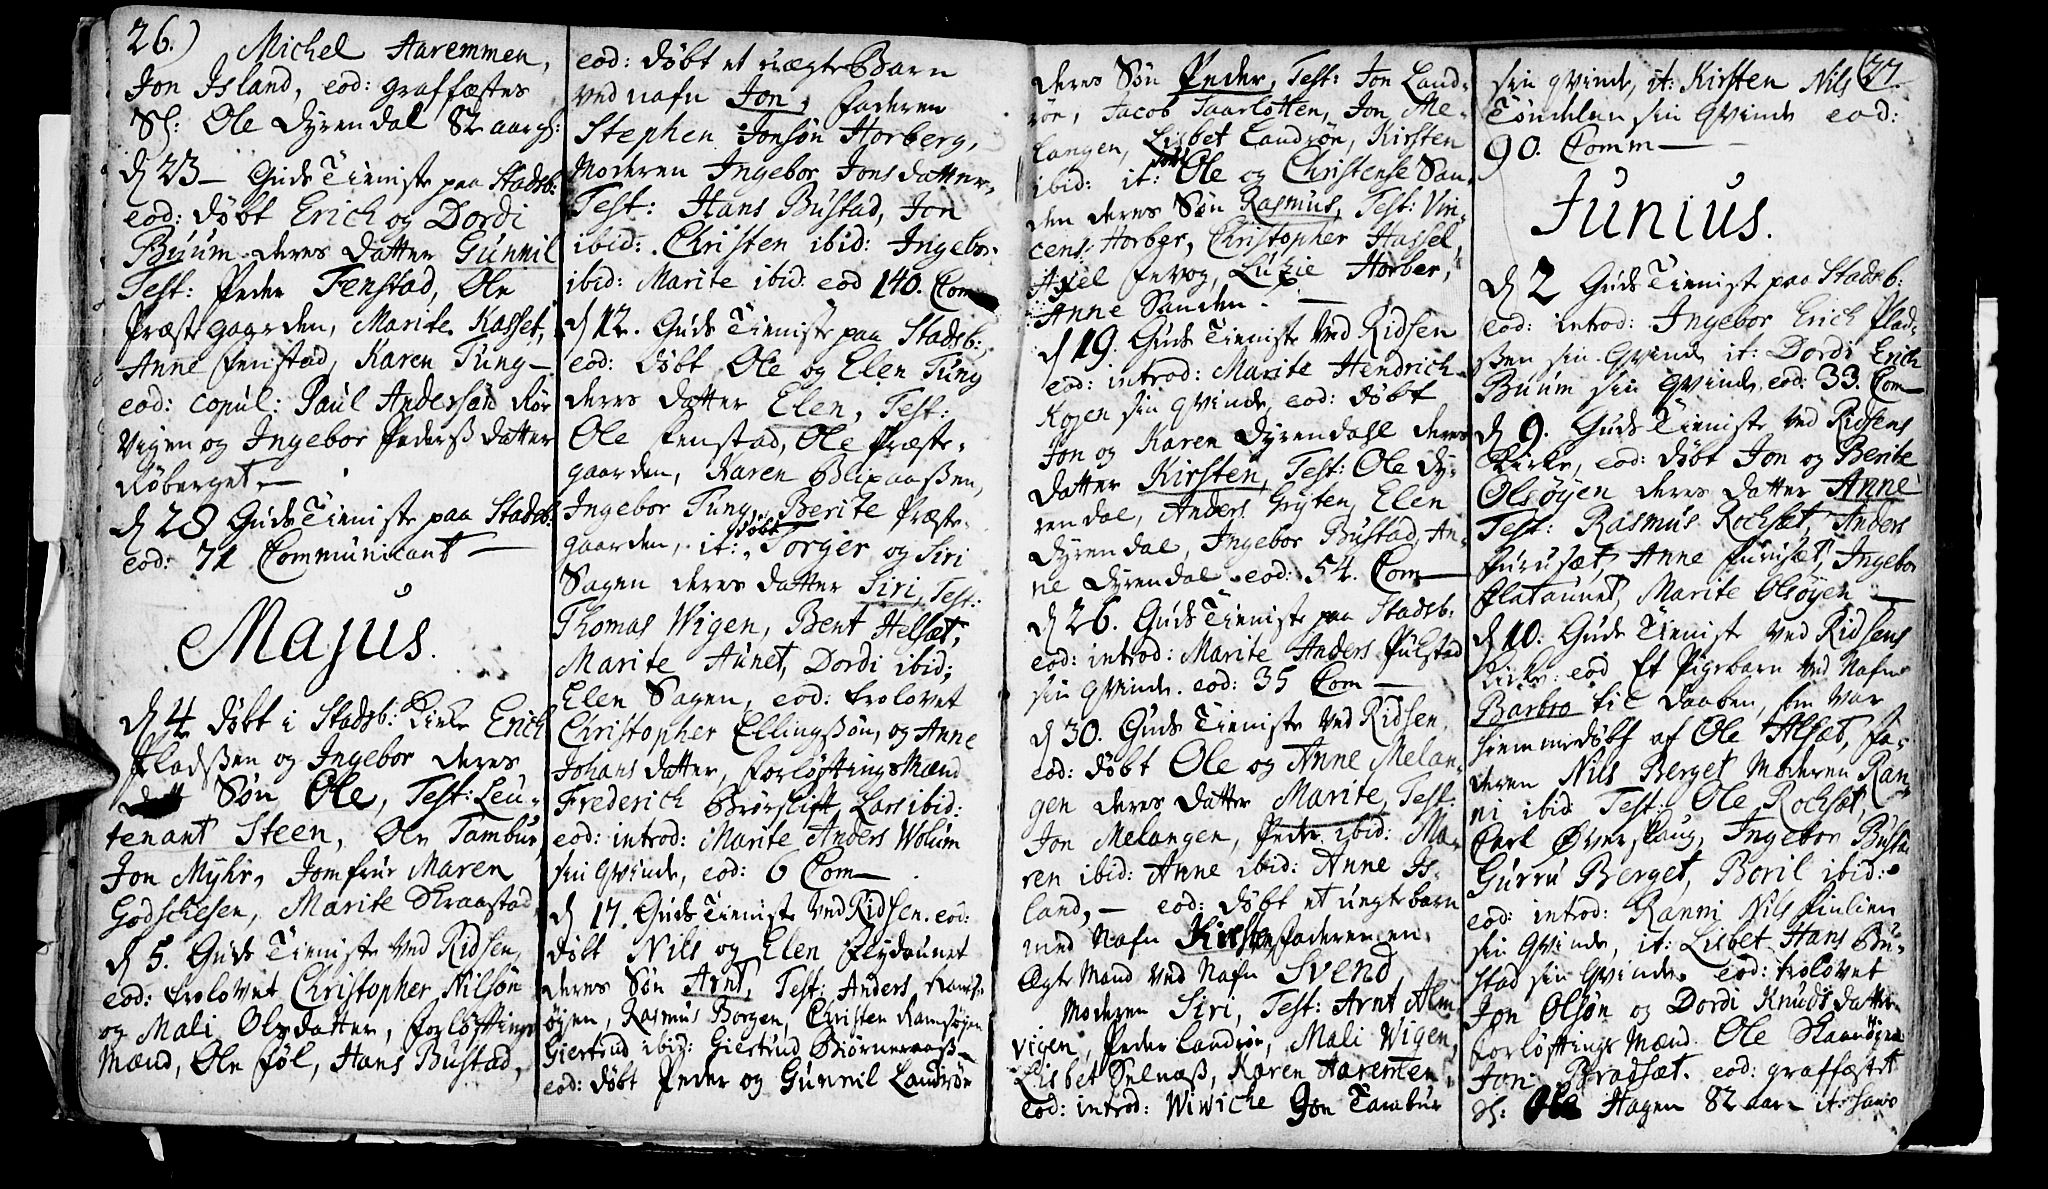 26.)
Michel Aaremmen,
Jon Island, eod: graffæstes
Sl: Ole Dyrendal 82 aar gl:
d 23 — Guds Tieniste paa Stadsb:
eod: døbt Erich og Dordi
Buum deres datter Gunnil
Test: Peder Fenstad, Ole
Præstegaarden, Marite Kasset,
Anne Fenstad, Karen Tung —
eod: copul: Paul Andersøn Rør
Vigen og Ingebor Pederß datter
Røberget —
d 28 Guds Tieniste paa Stadsb:
eod: 74 Communicant —
Majus.
d 4 døbt i Stadsb: Kirke Erich
Pladßen og Ingebor deres
Søn Ole, Test: Leu-
tenant Steen, Ole Tambur,
Jon Myhr, Jomfrue Maren
Godschesen, Marite Kraastad,
d 5. Guds Tieniste ved Ridsen,
eod: trolovet Christopher Nilsøn
og Mali Olsdatter, forløftings
Mænd, Ole Føl, Hans Bustad,
eod: døbt et uægte Barn
ved nafn Jon, faderen
Stephen Jonsøn Horberg,
Moderen Ingebor Jons datter,
Test: Hans Bustad, Jon
ibid: Christen ibid: Ingebor
ibid: Marite ibid. eod 140. Com
d 12. Guds Tieniste paa Stadsb:
eod: døbt Ole og Elen Tung
deres datter Elen, Test:
Ole Fenstad, Ole Præste-
gaarden, Karen Blixaaßen,
Ingebor Tung, Berite Præste-
gaarden, it: døbt Torger og Siri
Sagen deres datter Siri, Test:
Thomas Wigen, Bent Helsæt,
Marite Aunet, Dordi ibid:
Elen Sagen, eod: trolovet
Christopher Ellingsøn, og Anne
Johans datter, forløftings Mænd
Frederich Børslift, Lars ibid:
eod: introd: Marite Anders Wolum
sin qvinde, eod: 6 Com —
d 17. Guds Tieniste ved Ridsen. eod:
døbt Nils og Elen Flydaunet
deres Søn Arnt, Test: Anders Rams-
øjen, Rasmus Borgen, Christen Ramsøjen
Giertrud ibid: Giertrud Biørneraaß —
eod: døbt Peder og Gunnil Landrøn
deres Søn Peder, Test: Jon Land-
røn, Jacob Taarlotten, Jon Me-
langen, Lisbet Landrøn, Kirsten
ibid: it: døbt Ole og Christense San-
den deres Søn Rasmus, Test: Vin-
cens: Horber, Christopher Hassel,
Axel Fevog, Luzie Horber,
Anne Sanden. —
d 19. Guds Tieniste ved Ridsen
eod: introd: Marite Hendrich
Kojen sin qvinde, eod: døbt
Jon og Karen Dyrendahl deres
datter Kirsten, Test: Ole Dy-
rendal, Anders Gryten, Elen
Dyrendal, Ingebor Bustad, An-
ne Dyrendal. eod: 54. Com —
d 26. Guds Tieniste paa Stadsb:
eod: introd: Marite Anders Pulstad
sin qvinde. eod: 35 Com —
d 30. Guds Tieniste ved Ridsen.
eod: døbt Ole og Anne Melan-
gen deres datter Marite, Test:
Jon Melangen, Peder ibid: Ma-
ren ibid: Anne ibid: Anne Is-
land, — eod: døbt et uegte barn
med Nafn Kirsten, faderen en
Ægte Mand ved Nafn Svend,
Moderen Siri, Test: Arnt Alm
vigen, Peder Landrøn, Mali Wigen,
Lisbet Selnaß, Karen Aaremen,
eod: introd: Wiwiche Jon Tambur
27.
sin qvinde, it: Kirsten Nils
Tøndelen sin qvinde eod:
90. Comm —
Junius.
d 2 Guds Tieniste paa Stadsb:
eod: introd: Ingebor Erich Plad-
ßen sin qvinde it: Dordi Erich
Buum sin qvinde, eod: 33. Com —
d 9. Guds Tieniste ved Ridsens
Kirke, eod: døbt Jon og Berite
Olsøyen deres datter Anne
Test: Rasmus Rochsæt, Anders
Furusæt, Anne Furusæt, Ingebor
Flataunet, Marite Olsøyen —
d 10. Guds Tieniste ved Ridsens
Kirke: eod Et Pigebarn ved Nafn
Barbro til daaben, som var
hiemmedøbt af Ole Alsæt, fa-
deren Nils Berget Moderen Ran-
ni ibid Test: Ole Rochsæt,
Peel Øverskaug, Ingebor Busta
Gurru Berget, Boril ibid:
eod: introd: Ranni Nils Finlien
sin qvinde, it: Lisbet Hans Bu-
stad sin qvinde. eod: trolovet
Jon Olsøn og Dordi Knuds datter
forløftings Mænd. Ole Skaandien
Jon Bradsæt. eod: graffæstet
Sl: Ole Hagen 82 aar it: hans